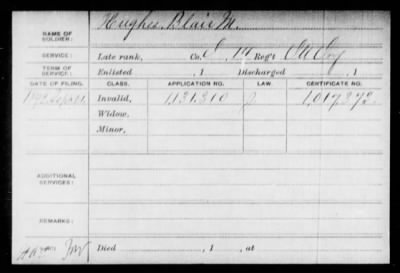 NAME OF SOLDIER: Hughes, Blair M.
SERVICE: Late rank, Co. Reg't
TERM OF SERVICE: Enlisted , 1 Discharged , 1
DATE OF FILING. CLASS. APPLICATION NO. LAW. CERTIFICATE NO.
1892 Invalid, 1,131,310 1,017,372.
Widow,
Minor,
ADDITIONAL SERVICES:
REMARKS:
Died , 1 , at